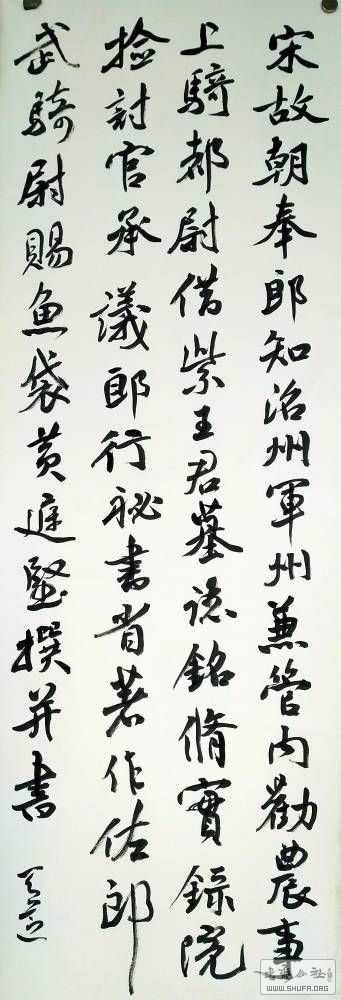 宋故朝奉郎知洺州軍州兼管内勸農事
上騎都尉借紫王君墓誌銘脩實錄院
撿討官承議郎行祕書省著作佐郎
武騎尉賜魚袋黃庭堅撰并書
WWW.SHUFA.ORG